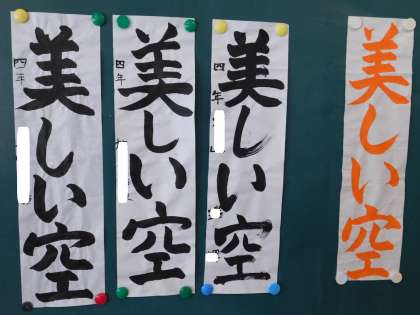 美しい空
四年
美しい空
四年
美しい空
四年
美しい空